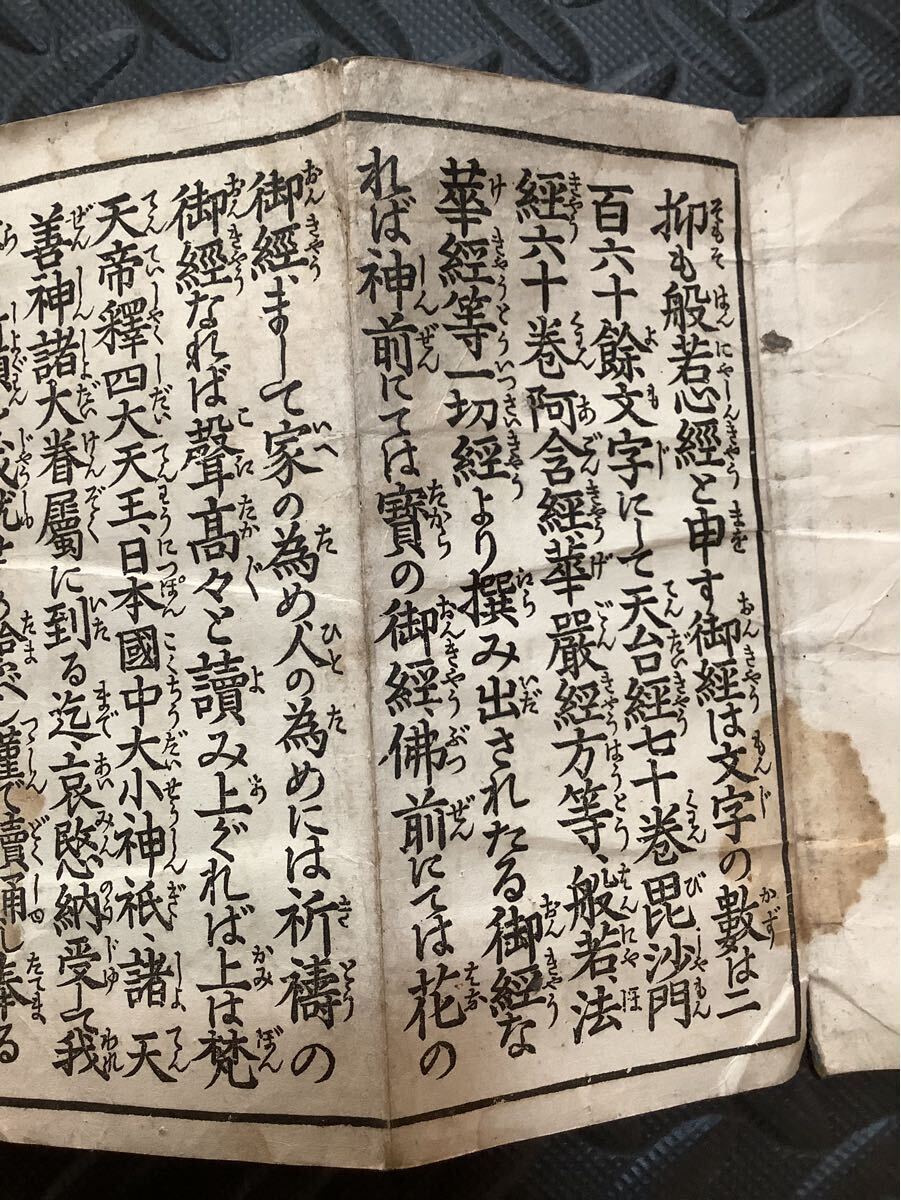 抑も般若心經と申す御經は文字の數は二
百六十餘文字にして天台經七十巻毘沙門
經六十巻阿含經華嚴經方等、般若、法
華經等一切經より撰み出されたる御經な
れば神前にては寶の御經、佛前にては花の
御經、まして家の為め人の為めには祈禱の
御經なれば聲高々と讀み上ぐれば上は梵
天帝釋四大天王、日本國中大小神祇、諸天
善神諸大眷屬に到る迄、哀愍納受して我
給べし謹で讀誦し奉る